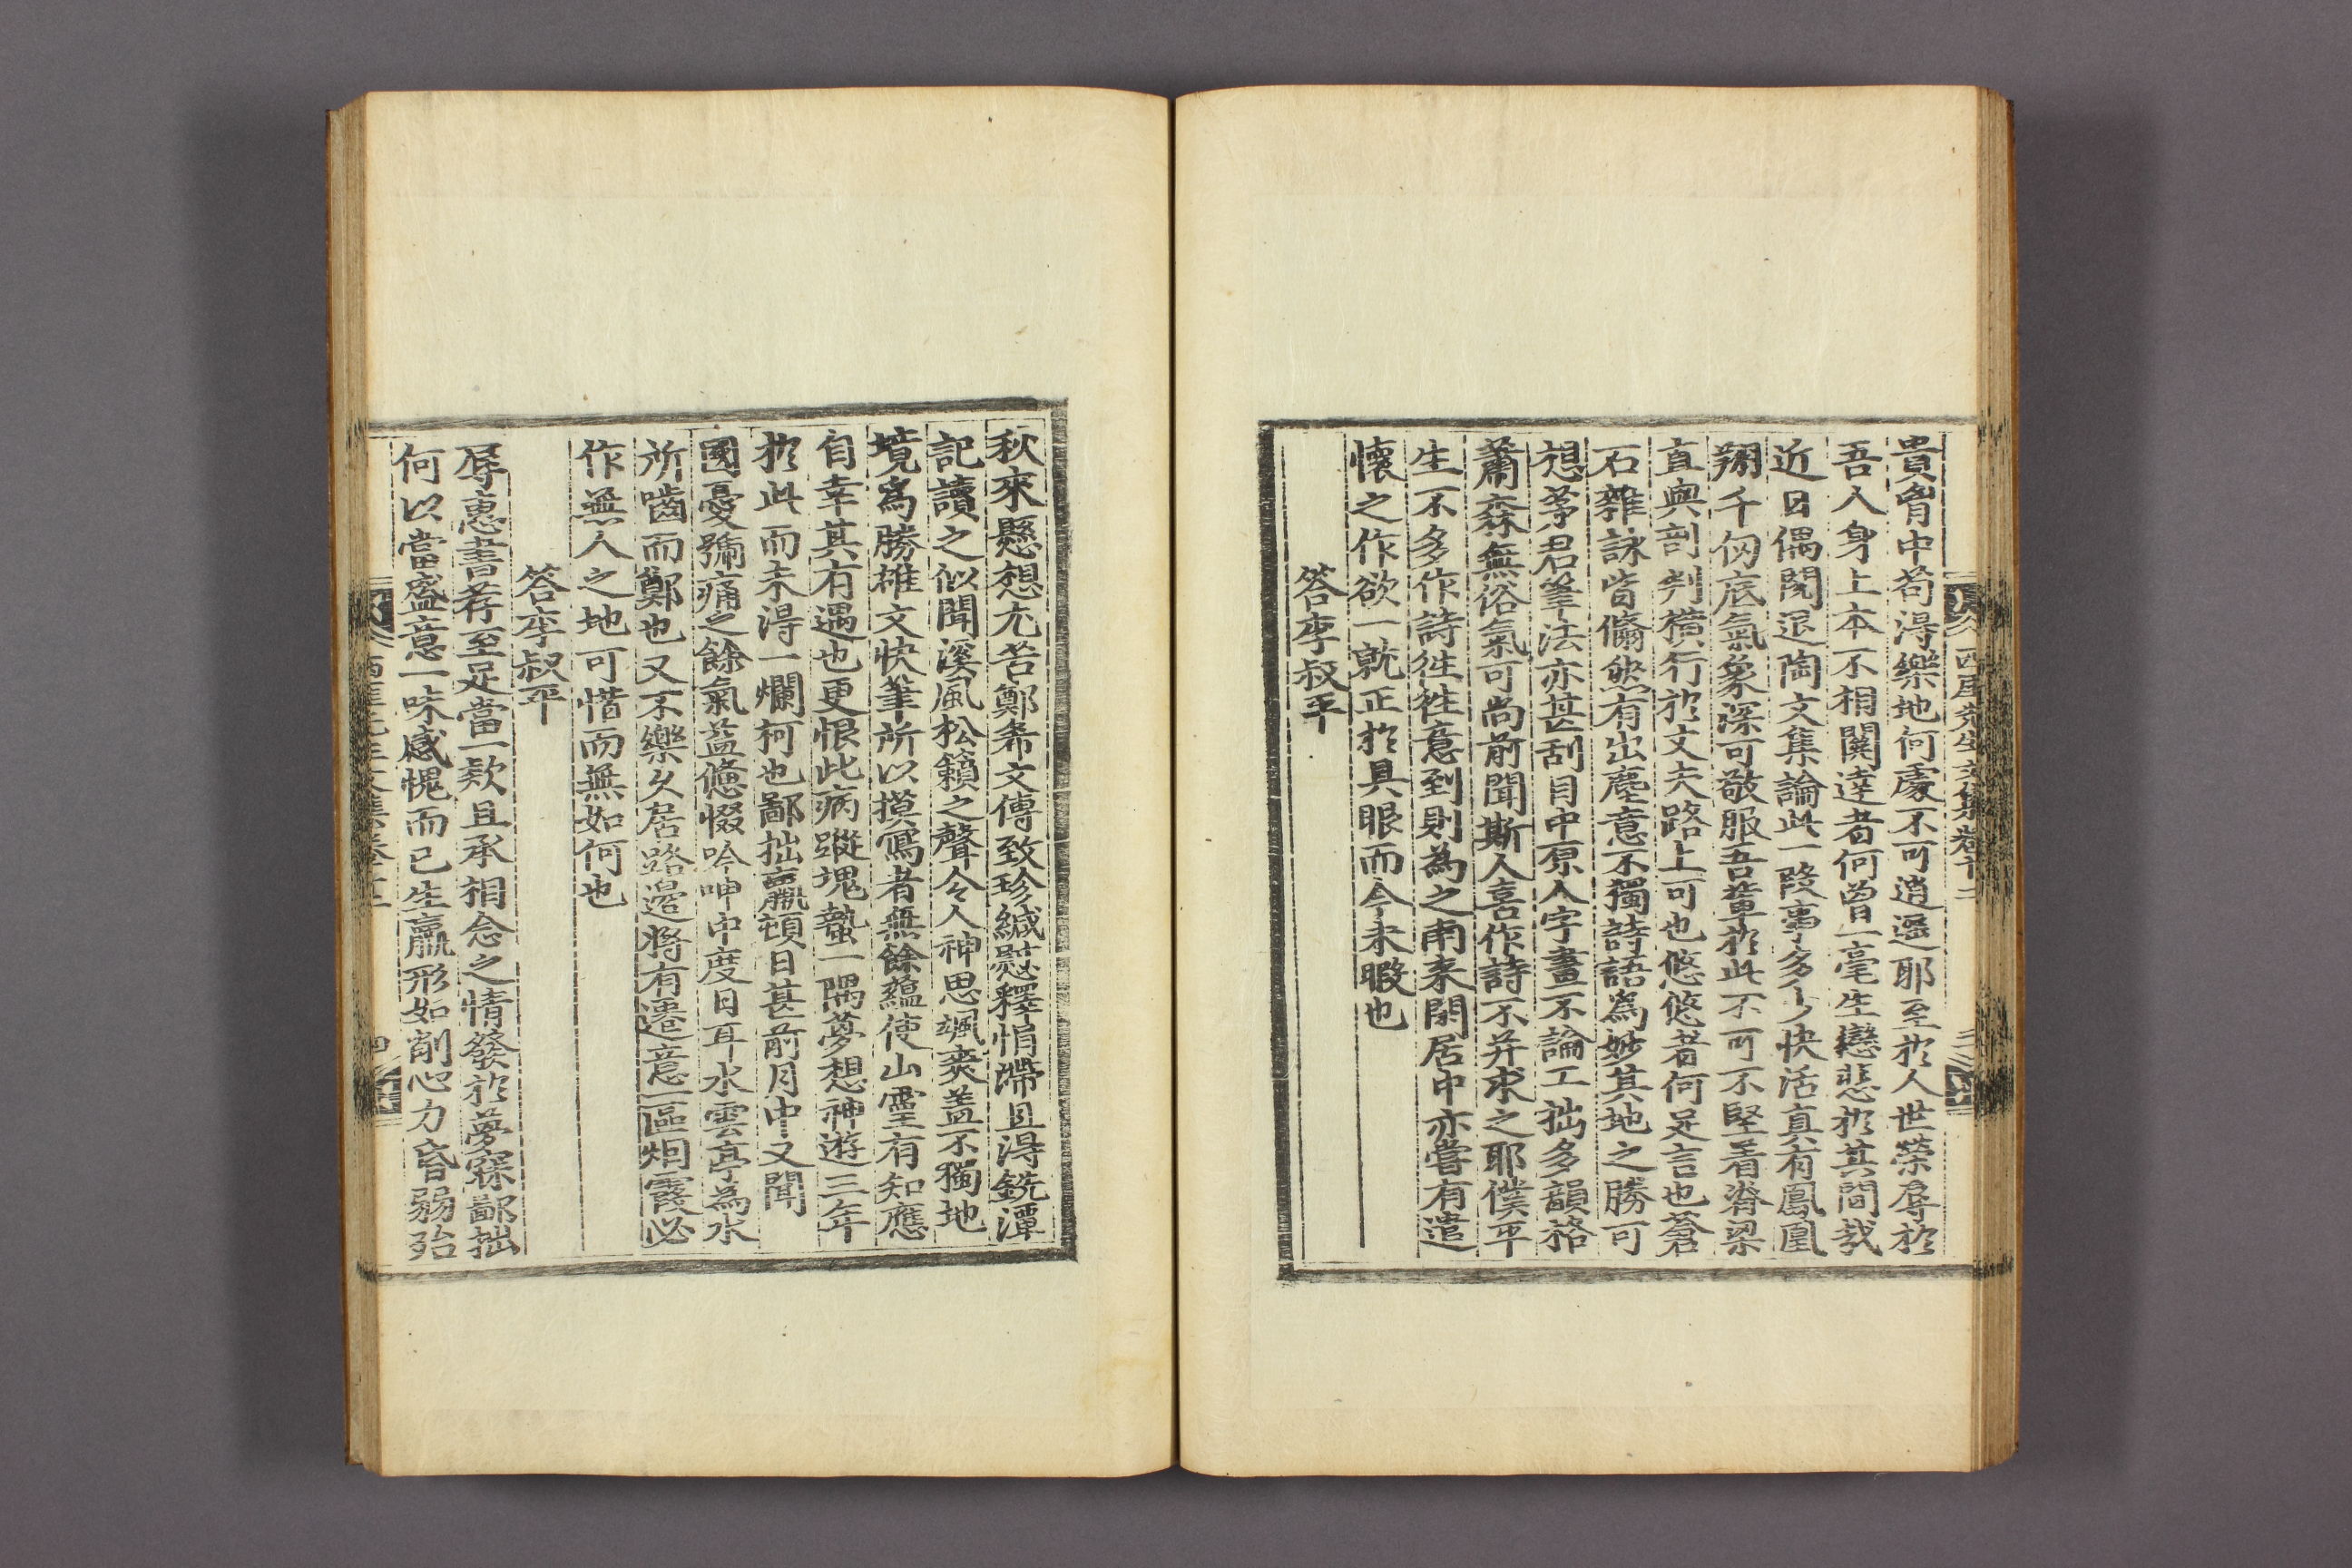 西厓先生文集卷十二
貴胷中苟淂樂地何處不可逍遥耶至於人世榮辱於
吾人身上本不相關逹者何曾一毫生戀悲於其間㢤
近日偶閱退陶文集論此一段事多少快活真有鳳凰
翔千仞底氣象深可敬服吾輩於此不可不堅着脊梁
直與剖判橫行於丈夫路上可也悠悠者何足言也蒼
石雜詠皆翛然有出塵意不獨詩語爲妙其地之勝可
想茅君筆法亦甚刮目中原人字畫不論工拙多韻格
蕭森無俗氣可尚前聞斯人喜作詩不并求之耶僕平
生不多作詩徃徃意到則為之南来閑居中亦嘗有遣
懷之作欲一就正於具眼而今未暇也
答李叔平
秋來懸想尤苦鄭希文傳致珍緘慰釋悁滯且淂銃潭
記讀之似聞溪風松籟之聲令人神思颯爽盖不獨地
境爲勝雄文快筆所以摸寫者無餘蘊使山靈有知應
自幸其有遇也更恨此病蹤塊蟄一隅夢想神遊三年
於此而未淂一爛柯也鄙拙羸頓日甚前月中又聞
國憂號痛之餘氣益憊惙吟呻中度日耳水雲亭為水
所嚙而鄭也又不樂久居路邊將有遷意一區烟霞必
作無人之地可惜而無如何也
答李叔平
辱惠書荐至足當一欵且承相念之情發於夢寐鄙拙
何以當盛意一味感愧而已生羸形如削心力昏弱殆
西厓先生文集卷十二
四